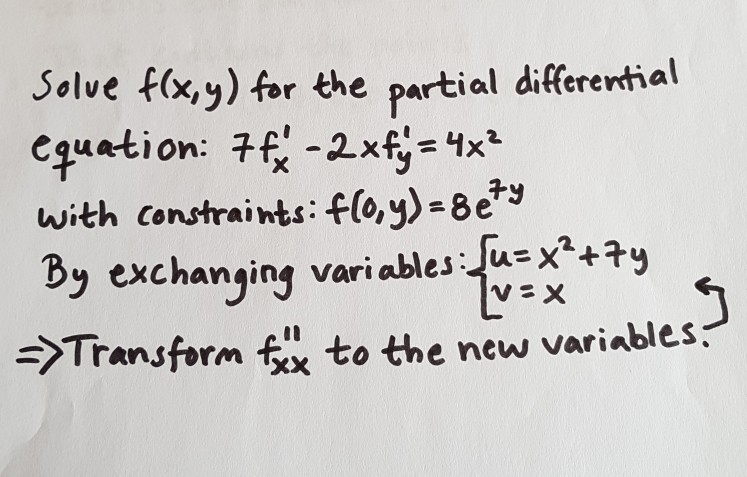 Solve f(x,y) for the partial differential
equation: 7f'x - 2xf'y = 4x²
with constraints: f(0,y) = 8e^7y
By exchanging variables: {u = x² + 7y
v = x
=> Transform f''xx to the new variables.